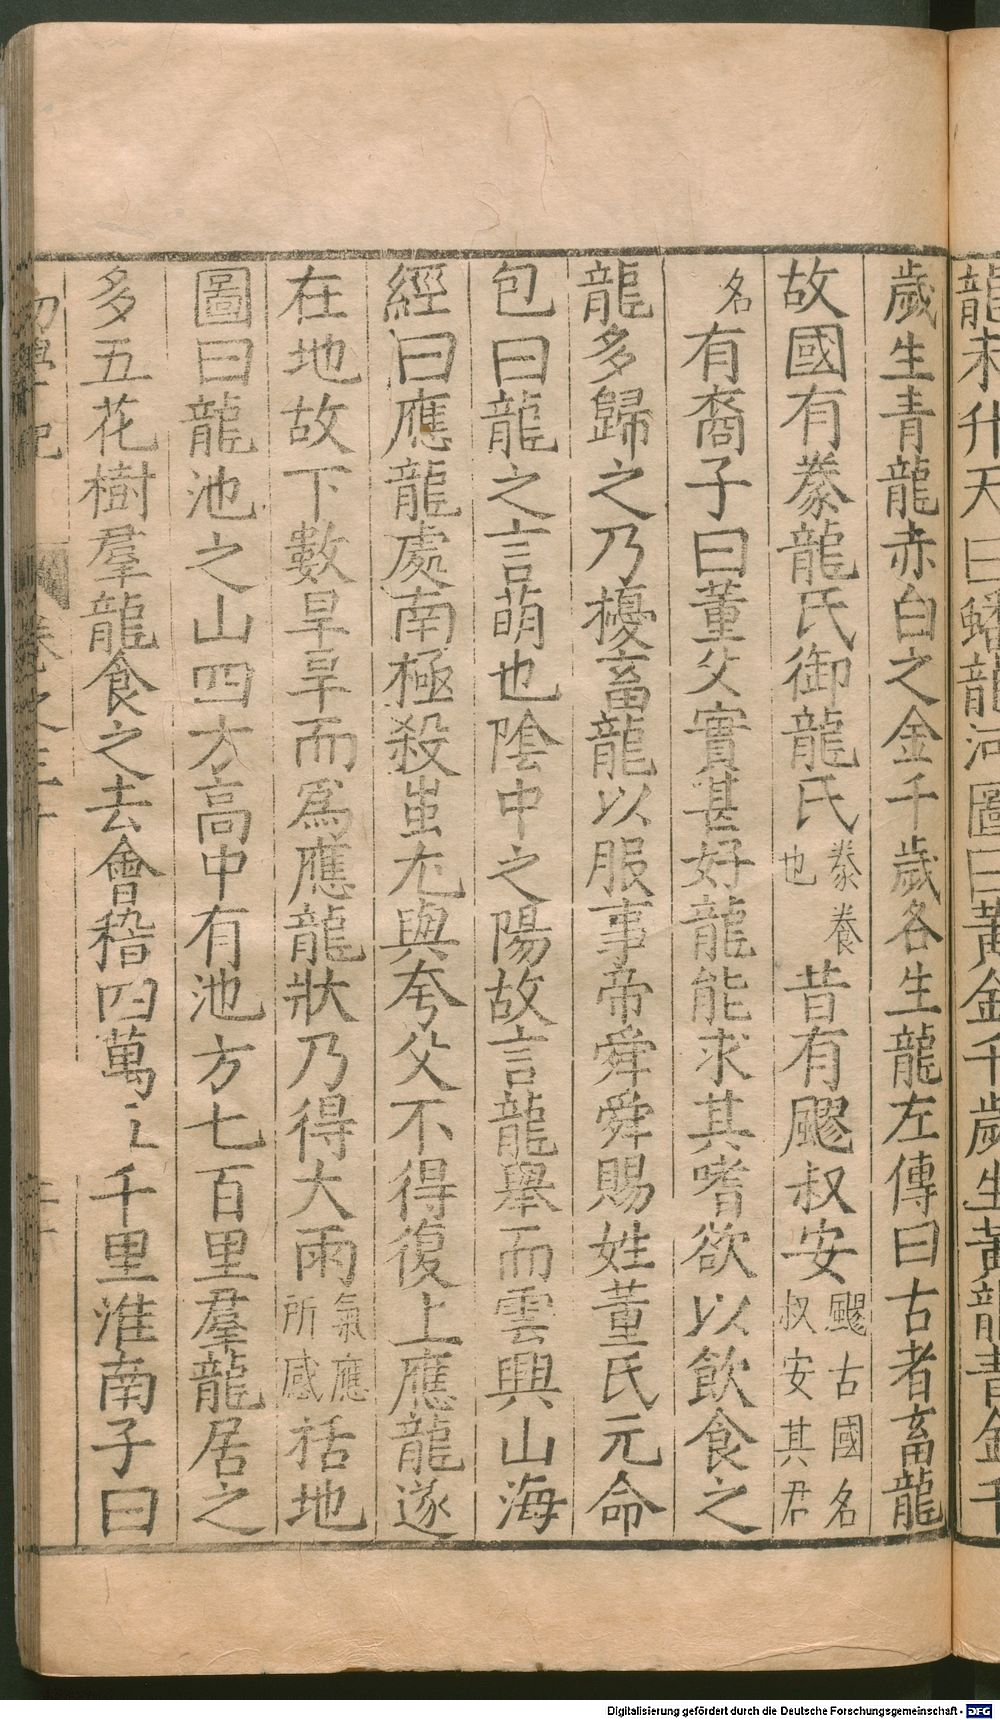 龍未升天曰蟠龍河圖曰黃金千歲生黃龍青金千
歲生青龍赤白之金千歲各生龍左傳曰古者畜龍
故國有豢龍氏御龍氏豢養也昔有飂叔安飂古國名叔安其君
名有裔子曰董父實甚好龍能求其嗜欲以飲食之
龍多歸之乃擾畜龍以服事帝舜舜賜姓董氏元命
包曰龍之言萌也陰中之陽故言龍舉而雲興山海
經曰應龍處南極殺蚩尤與夸父不得復上應龍遂
在地故下數旱旱而爲應龍狀乃得大雨氣應所感括地
圖曰龍池之山四方高中有池方七百里羣龍居之
多五花樹羣龍食之去會稽四萬千里淮南子曰
初學記 卷之三十
Digitalisierung gefördert durch die Deutsche Forschungsgemeinschaft - DFG